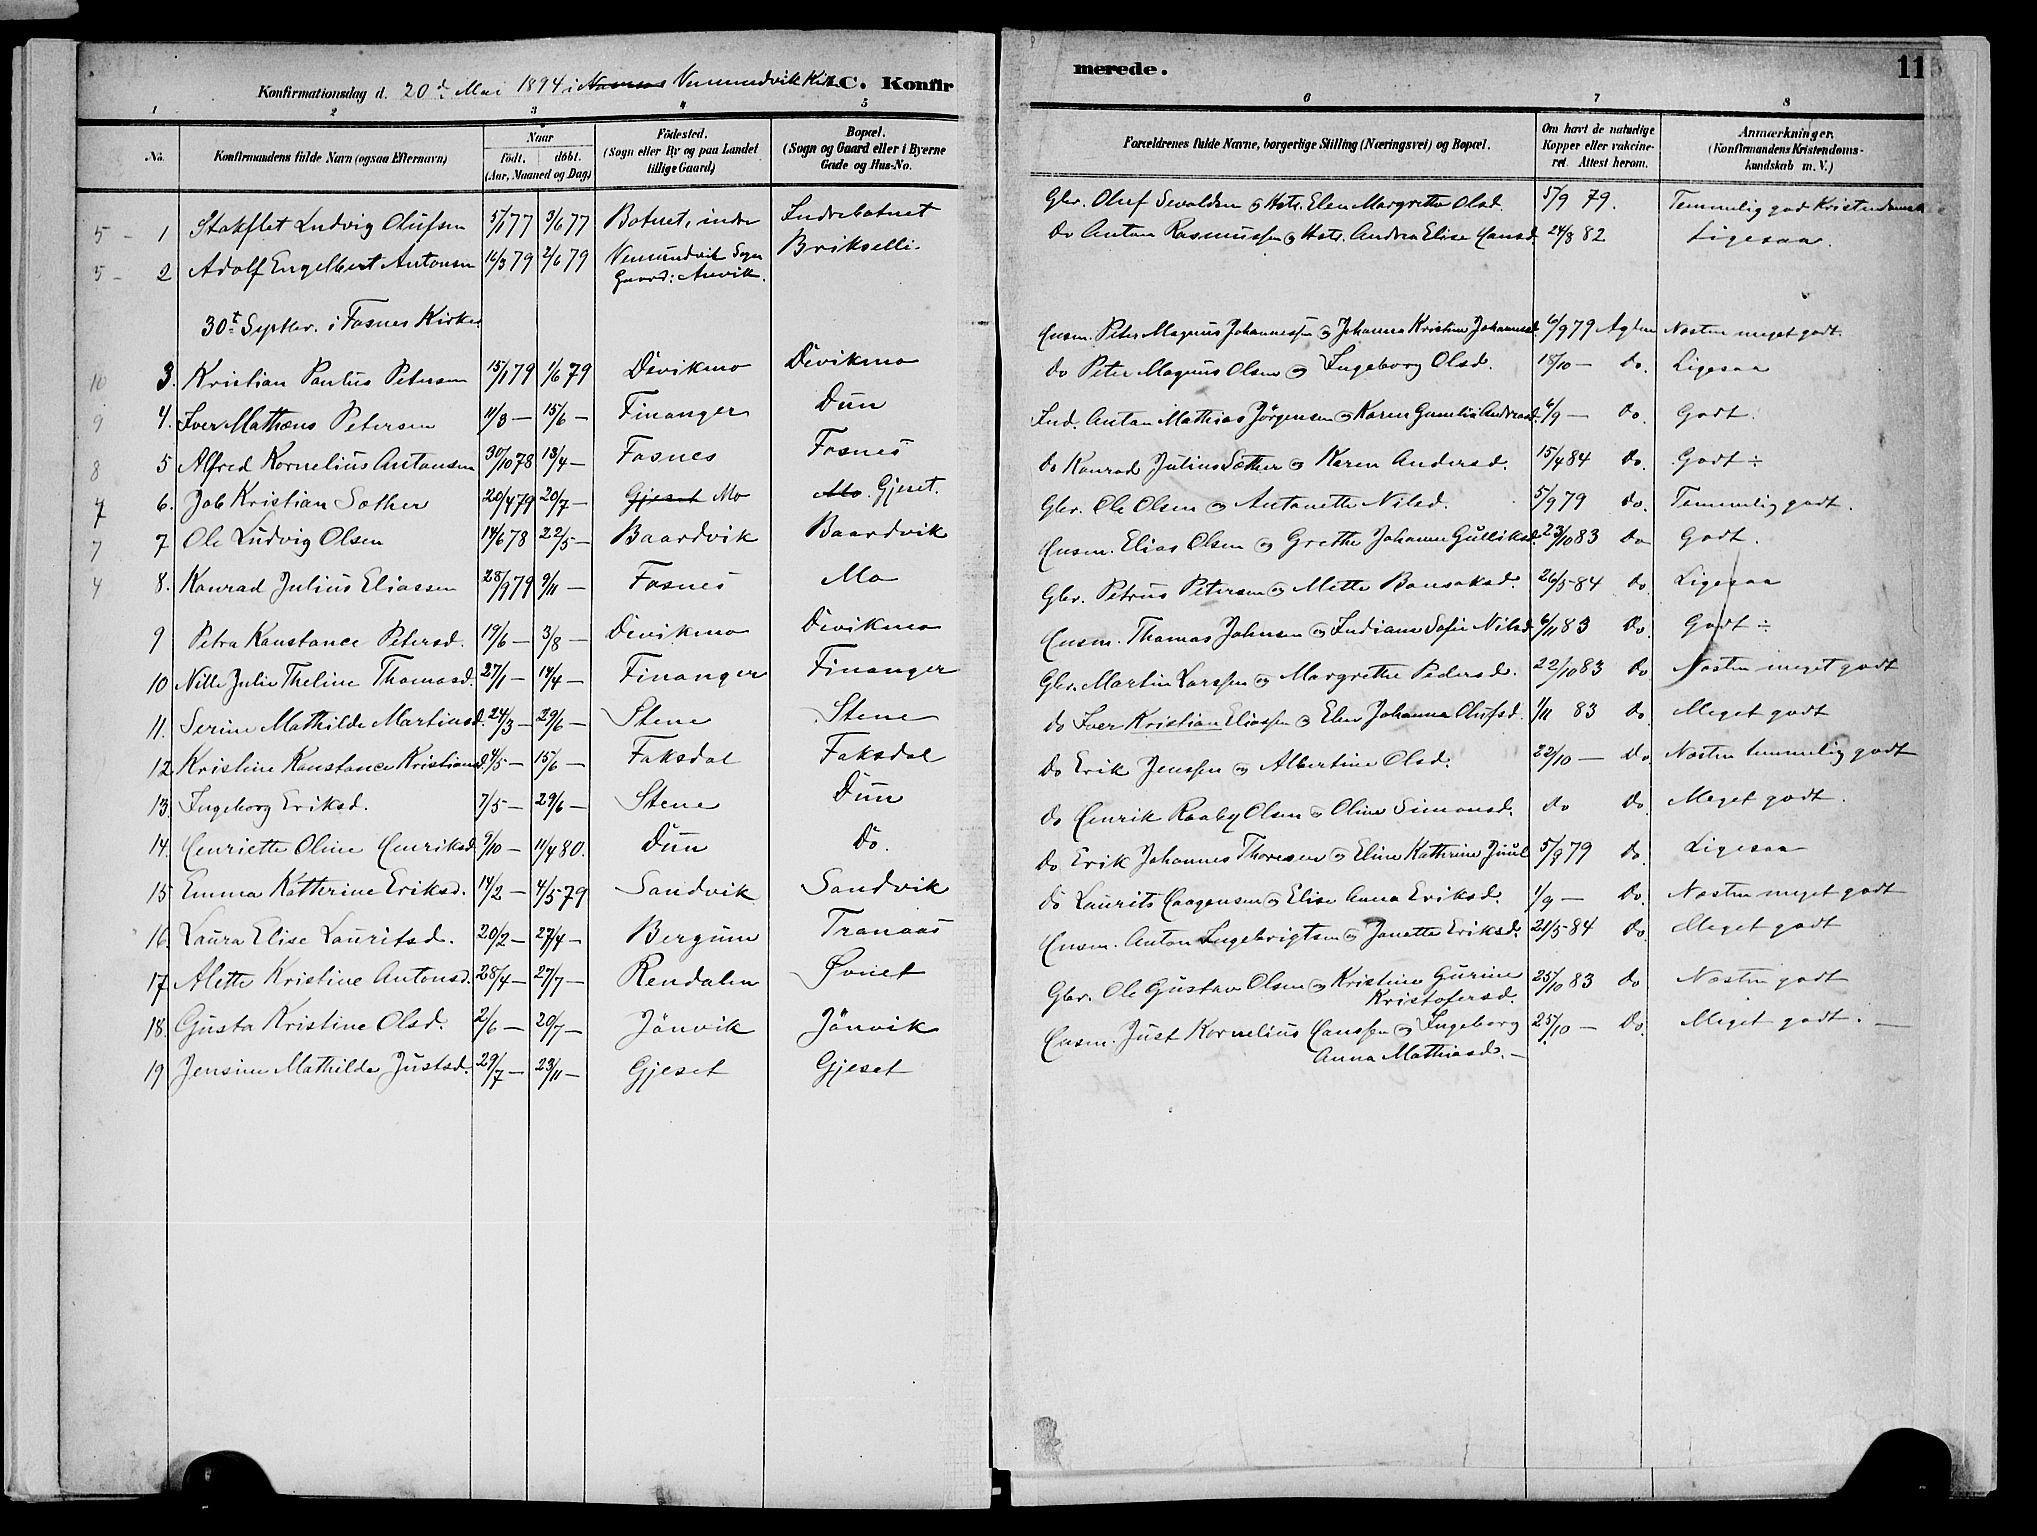 Konfirmationsdag d. 20de Mai 1894 i Vemundvik Kirke C. Konfir
merede.
11
1 2 3 4 5
6 7 8
No. Konfirmandens fulde Navn (ogsaa Efternavn) Naar födt. döbt. (Aar, Maaned og Dag) Födested. (Sogn eller By og paa Landet tillige Gaard) Bopæl. (Sogn og Gaard eller i Byerne Gade og Hus-No.
Forældrenes fulde Navne, borgerlige Stilling (Næringsvei) og Bopæl. Om havt de naturlige Kopper eller vakcineret. Attest herom. Anmærkninger. (Konfirmandens Kristendomskundskab m. V.)
5 - 1 Ludvig Olufsen 5/1 77 3/6 77 Botnet, indre Indrebotnet Gbr. Oluf Sevaldsen og Hstr. Elen Margrethe Olsd. 5/9 79. Temmelig god
5 - 2 Adolf Engelbert Antonsen 16/3 79 2/6 79 Vemundvik Sogn Gaard: Brikselli Do Anton Rasmussen og Hstr. Andrea Elise Hansd. 24/8 82 Ligesaa.
30te Septbr. i Fosnes Kirke
10 3. Kristian Paulus Petersen 15/1 79 1/6 79 Devikmo Devikmo Husm. Peter Magnus Johannessen og Johanna Kristine 6/9 79 Næsten meget godt.
9 4. Iver Mathæus Petersen 11/3 - 15/6 - Finanger Dun Do Peter Magnus Olsen og Ingeborg Olsd. 18/10 - Do. Ligesaa
8 5 Alfred Kornelius Antonsen 30/10 78 13/4 - Fosnes Fosnes Ind. Anton Mathias Jørgensen og Karen 6/9 - Do. Godt.
7 6. Job Kristian Sæther 20/4 79 20/7 - Gjeset Mo Mo. Gjeset. Do Konrad Julius Sæther og Karen Andersd. 15/4 84 Do. Godt ÷
7 7 Ole Ludvig Olsen 14/6 78 22/5 - Baardvik Baardvik Gbr. Ole Olsen og Antonette Nilsd. 5/9 79 Do. Temmelig godt.
4 8. Konrad Julius Eliassen 28/9 79 9/11 - Fosnes Mo Husm. Elias Olsen og Grethe Johanna Gulliksd. 23/10 83 Do Godt.
9 Petra Konstance Petersd. 19/6 - 3/8 - Devikmo Devikmo Gbr. Petrus Petersen og Mette Bonsaksd. 26/5 84 Do Ligesaa
10 Nille Julie Theline Thomasd. 27/1 - 14/4 - Finanger Finanger Husm. Thomas Johnsen og Indiana Sofie Nilsd. 6/11 83 Do. Godt ÷
11. Serine Mathilde Martinsd. 24/3 - 29/6 - Stene Stene Gbr. Martin Larssen og Margrethe Pedersd. 22/10 83 Do Næsten meget godt
12. Kristine Konstance Kristiansd. 4/5 - 15/6 - Faksdal Faksdal do Iver Kristian Eliassen og Elen Johanna Olufsd. 1/11 83 Do. Meget godt
13. Ingeborg Eriksd. 7/5 - 29/6 - Stene Dun Do Erik Jenssen og Albertine Olsd. 22/10 - Do Næsten temmelig godt
14. Henriette Oline Henriksd. 9/10 - 11/4 80. Dun Do. do Henrik Raaby Olsen og Oline Simonsd. Do Do. Meget godt.
15 Emma Katherine Eriksd. 14/2 - 4/5 79 Sandvik Sandvik Do Erik Johannes Thoresen og Eline Kathrine Juul 5/9 79 Do. Ligesaa
16. Laura Elise Lauritsd. 20/2 - 27/4 - Bergum Tranaas do Laurits Haagensen og Elise Anna Eriksd. 1/9 - Do. Næsten meget godt
17 Alette Kristine Antonsd. 28/4 - 27/7 - Rendalen Øvriet Husm. Anton Ingebrigtsen og Janette Eriksd. 21/5 84 Do. Meget godt
18. Gusta Kristine Olsd. 2/6 - 20/7 - Jönvik Jönvik Gbr. Ole Gustav Olsen og Kristine Gurine Kristofersd. 25/10 83 Do Næsten godt
19 Jensine Mathilde Justsd. 29/7 - 23/11 - Gjeset Gjeset Husm. Just Kornelius Hanssen og Ingeborg Anna Mathiasd. - 25/10 - Do. Meget godt. -